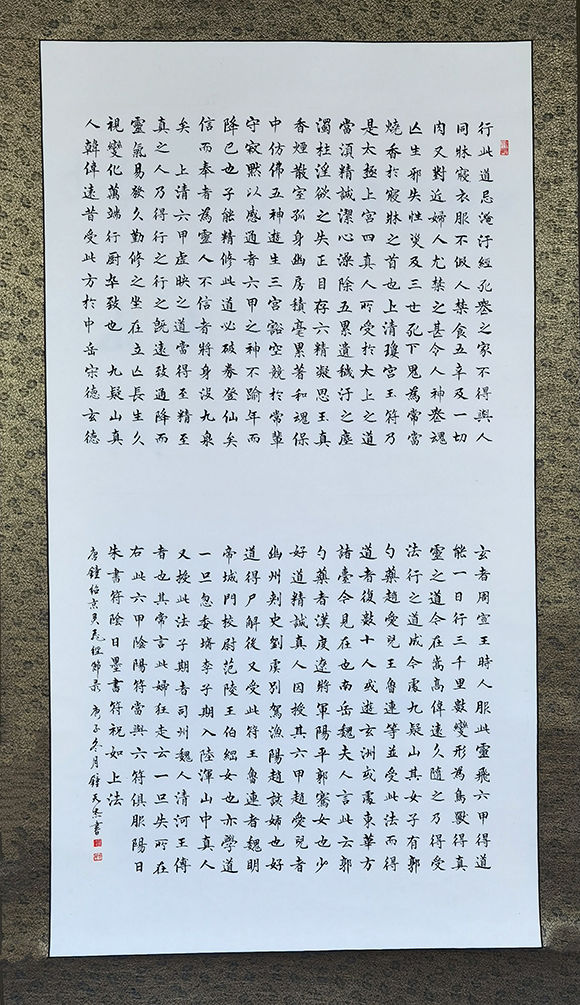 行此道忌淹汙經死喪之家不得與人
同牀寢衣服不假人禁食五辛及一切
肉又對近婦人尤禁之甚令人神喪魂
亾生邪失性災及三世死下鬼為常當
燒香於寢牀之首也上清瓊宮玉符乃
是太極上宮四真人所受於太上之道
當湏精誠潔心澡除五累遺穢汙之塵
濁杜淫欲之失正目存六精凝思玉真
香煙散室孤身幽房積毫累著和魂保
中仿佛五神遊生三宮豁空競於常輩
守寂默以感通者六甲之神不踰年而
降已也子能精修此道必破券登仙矣
信而奉者為靈人不信者將身沒九泉
矣 上清六甲虛映之道當得至精至
真之人乃得行之行之既速致通降而
靈氣易發久勤修之坐在立亾長生久
視變化萬端行廚卒致也 九疑山真
人韓偉遠昔受此方於中岳宗德玄德
玄者周宣王時人服此靈飛六甲得道
能一日行三千里數變形為鳥獸得真
靈之道今在嵩高偉遠久隨之乃得受
法行之道成今處九疑山其女子有郭
勺藥趙愛兒王魯連等並受此法而得
道者復數十人或遊玄洲或處東華方
諸臺今見在也南岳魏夫人言此云郭
勺藥者漢度遼將軍陽平郭騫女也少
好道精誠真人因授其六甲趙愛兒者
幽州刾史劉虞別駕漁陽趙該婦也好
道得尸解後又受此符王魯連者魏明
帝城門校尉范陵王伯綱女也亦學道
一旦忽委壻李子期入陸渾山中真人
又授此法子期者司州魏人清河王傅
者也其常言此婦狂走云一旦失所在
右此六甲陰陽符當與六符俱服陽日
朱書符陰日墨書符祝如上法
唐鍾紹京靈飛經節录 庚子冬月鍾天書